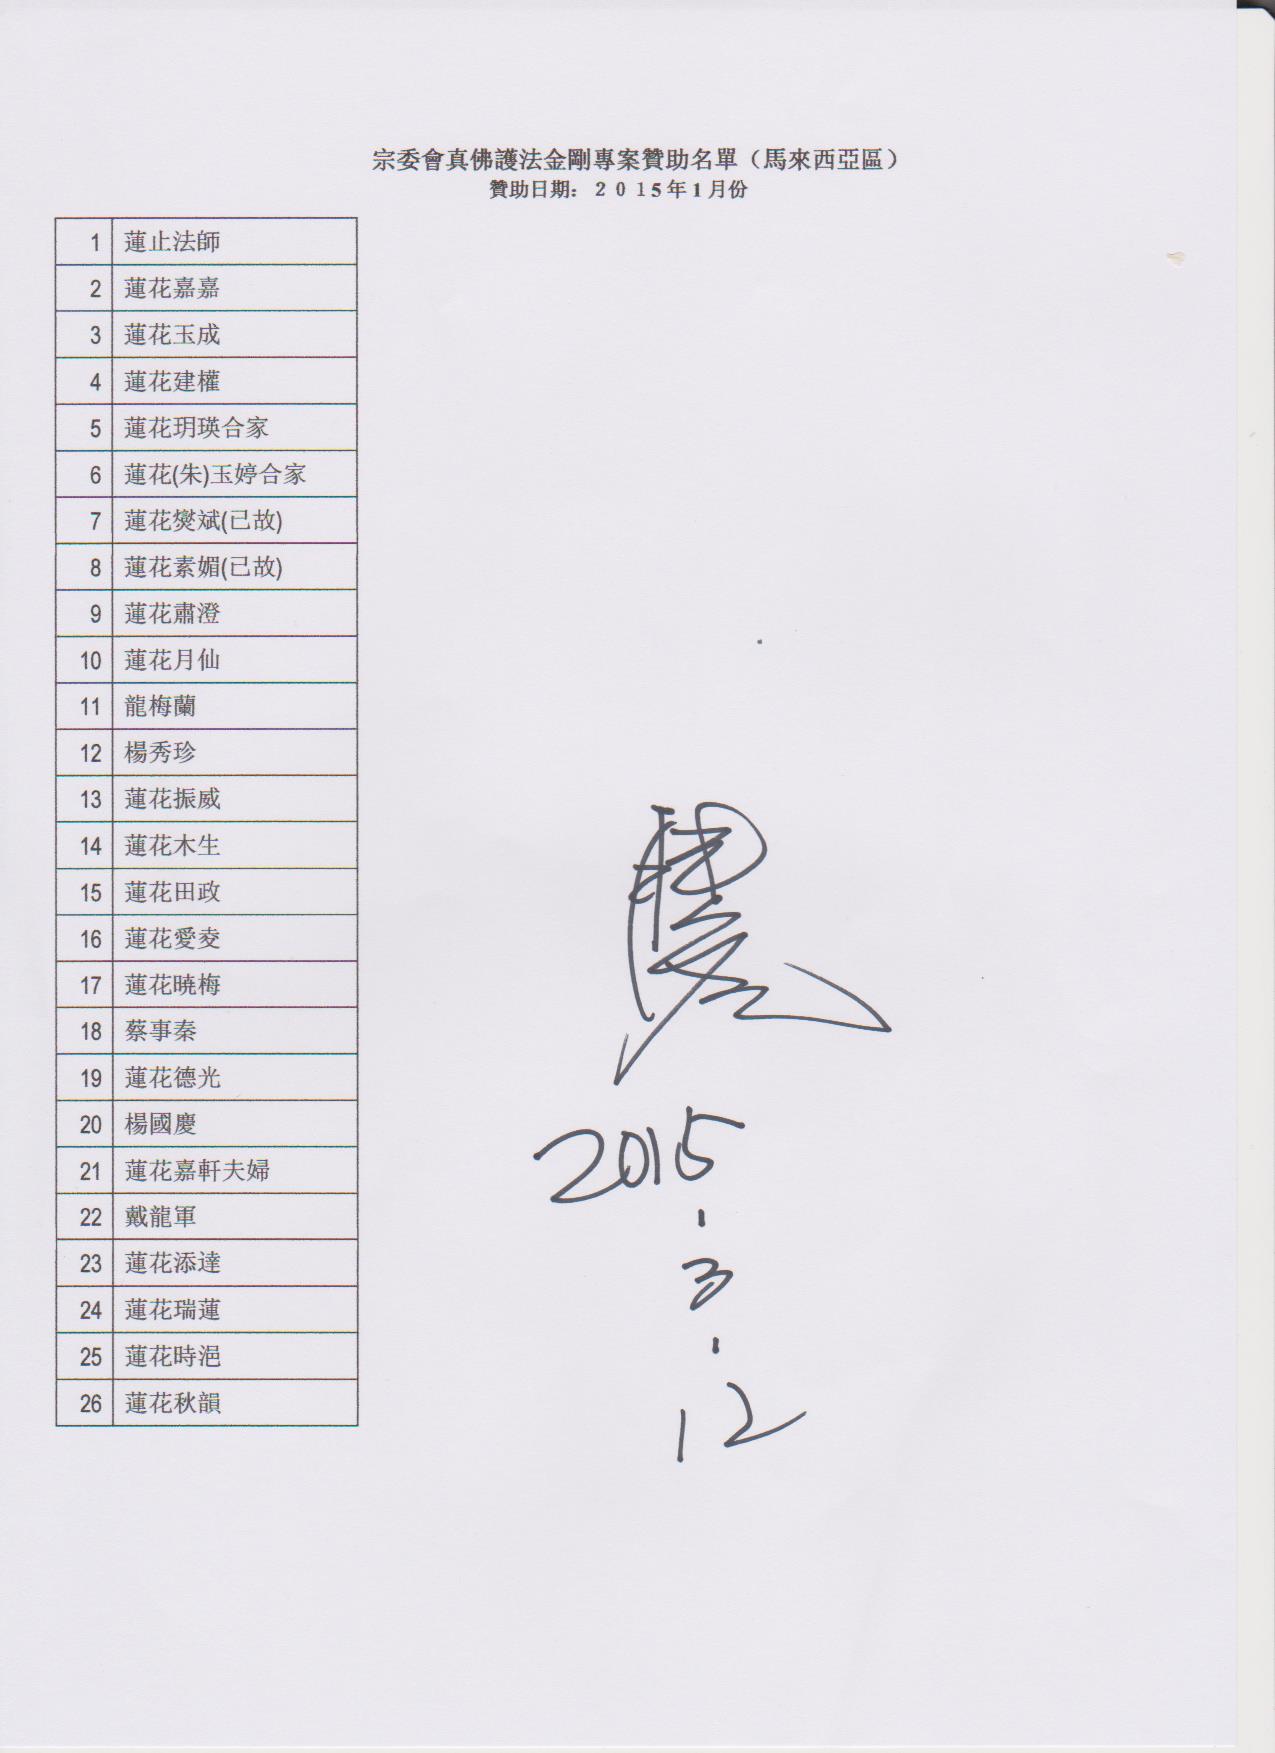 宗委會真佛護法金剛專案贊助名單（馬來西亞區）
贊助日期：２０１５年１月份
1 蓮止法師
2 蓮花嘉嘉
3 蓮花玉成
4 蓮花建權
5 蓮花玥瑛合家
6 蓮花(朱)玉婷合家
7 蓮花爕斌(已故)
8 蓮花素媚(已故)
9 蓮花肅澄
10 蓮花月仙
11 龍梅蘭
12 楊秀珍
13 蓮花振威
14 蓮花木生
15 蓮花田政
16 蓮花愛夌
17 蓮花曉梅
18 蔡事秦
19 蓮花德光
20 楊國慶
21 蓮花嘉軒夫婦
22 戴龍軍
23 蓮花添達
24 蓮花瑞蓮
25 蓮花時浥
26 蓮花秋韻
2015
-
3
-
12